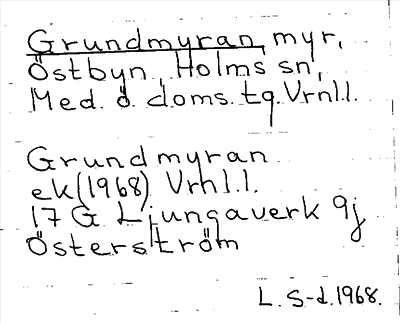 Grundmyran, myr,
Östbyn, Holms sn,
Med. ö. doms. tg. Vrnl.l.
Grundmyran
ek (1968) Vrnl.l.
17 G Ljungaverk 9j
Österström
L. S-d. 1968.